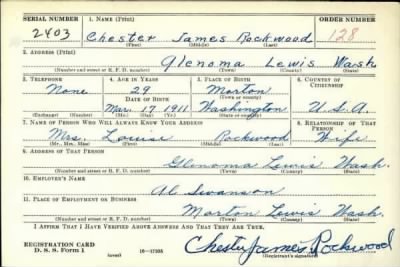 SERIAL NUMBER 1. NAME (Print) ORDER NUMBER
2403 Chester James Rockwood 128
(First) (Middle) (Last)
2. ADDRESS (Print)
Glenoma Lewis Wash
(Number and street or R. F. D. number) (Town) (County) (State)
3. TELEPHONE 4. AGE IN YEARS 5. PLACE OF BIRTH 6. COUNTRY OF CITIZENSHIP
None 29 Morton
DATE OF BIRTH (Town or county)
Mar. 17 1911 Washington U.S.A.
(Exchange) (Number) (Mo.) (Day) (Yr.) (State or country)
7. NAME OF PERSON WHO WILL ALWAYS KNOW YOUR ADDRESS 8. RELATIONSHIP OF THAT PERSON
Mrs. Louise Rockwood Wife
(Mr., Mrs., Miss) (First) (Middle) (Last)
9. ADDRESS OF THAT PERSON
Glenoma Lewis Wash.
(Number and street or R. F. D. number) (Town) (County) (State)
10. EMPLOYER'S NAME
Al Swanson
11. PLACE OF EMPLOYMENT OR BUSINESS
Morton Lewis Wash.
(Number and street or R. F. D. number) (Town) (County) (State)
I AFFIRM THAT I HAVE VERIFIED ABOVE ANSWERS AND THAT THEY ARE TRUE.
REGISTRATION CARD
D. S. S. Form 1 (over) 16—17105 Chester James Rockwood
(Registrant's signature)